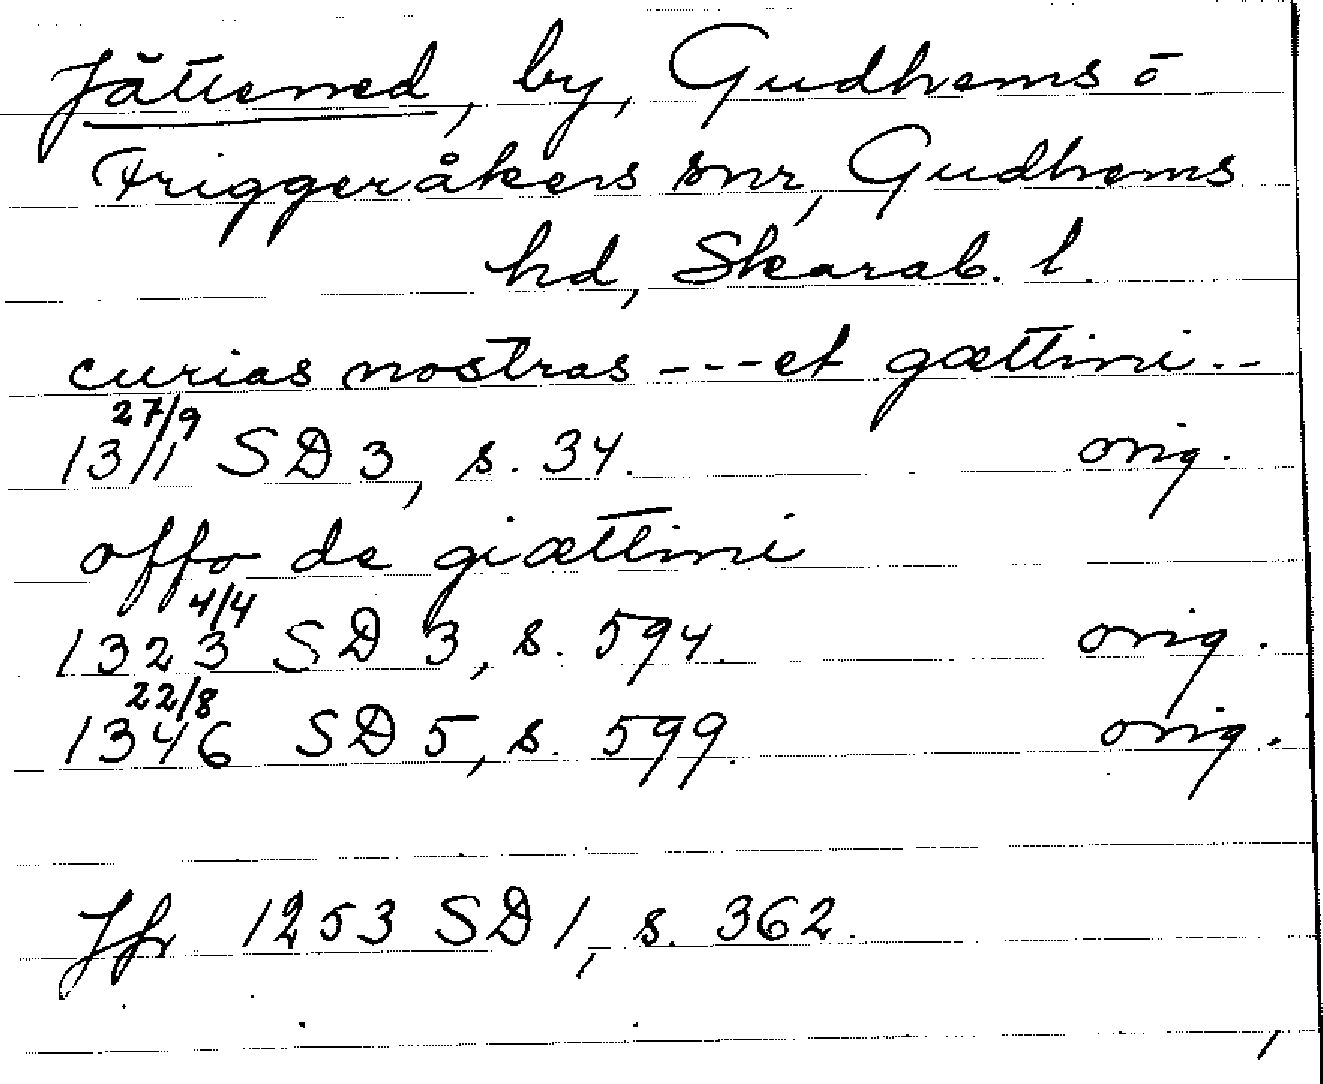 Jättened, by, Gudhems o
Friggeråkers snr, Gudhems
hd, Skarab. l.
curias nostras --- et gættini --
27/9
1311 SD 3, s. 34. orig.
offo de giættini
4/4
1323 SD 3, s. 594. orig.
22/8
1346 SD 5, s. 599. orig.
Jfr 1253 SD 1, s. 362.